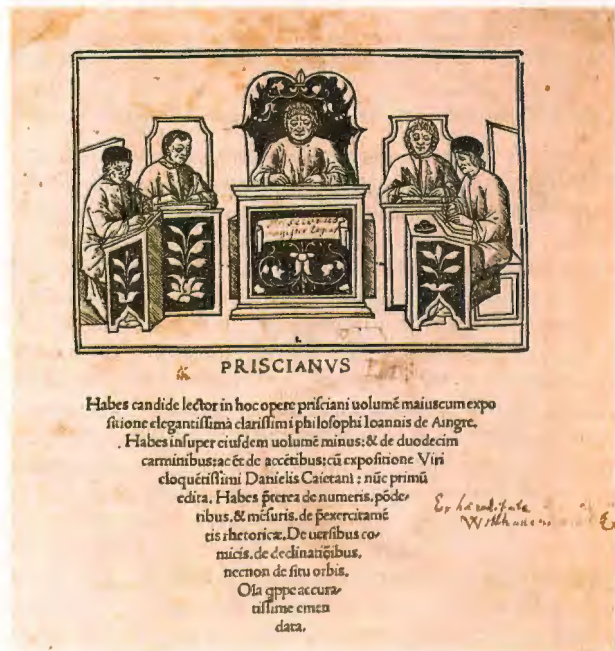 PRISCIANVS
Habes candide lector in hoc opere prisciani uolumē maiuscum expo
sitione elegantissima clarissimi philosophi Ioannis de Aingre.
Habes insuper eiusdem uolumē minus: & de duodecim
carminibus: ac ēt de accētibus: cū expositione Viri
eloquētissimi Danielis Caietani: nūc primū
edita. Habes p̄terea de numeris. pōde⸗
ribus. & mēsuris. de p̄exercitamē
tis rhetoricæ. De uersibus co⸗
micis. de declinatiōibus.
necnon de situ orbis.
Oīa qppe accura⸗
tissime emen
data.